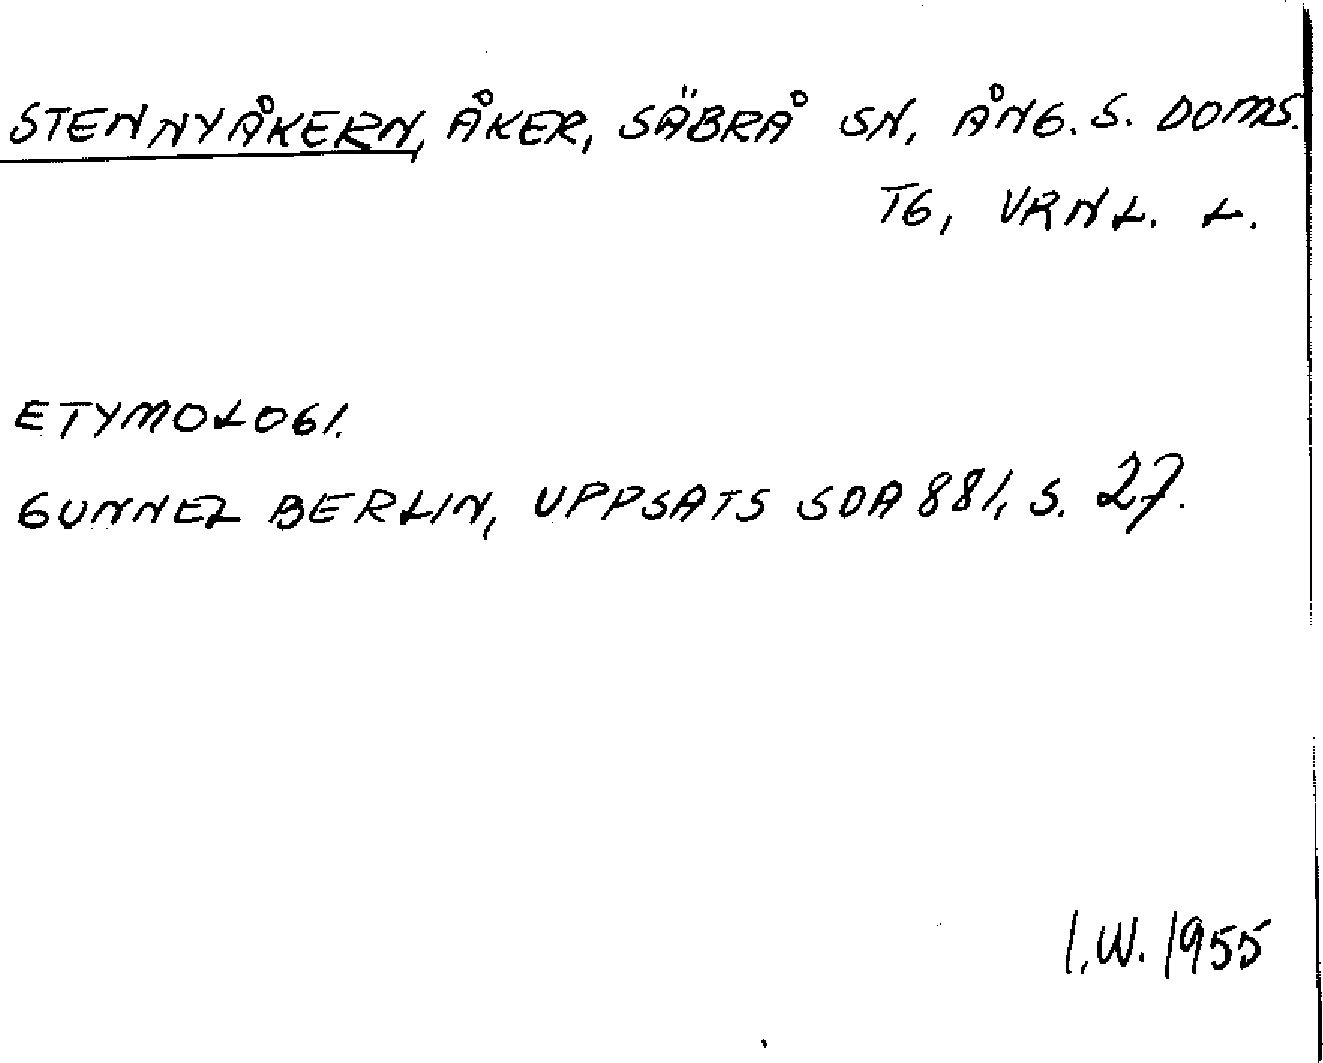 STENNYÅKERN, ÅKER, SÄBRÅ SN, ÅNG. S. DOMS.
TG, VRNL. L.
ETYMOLOGI.
GUNNEL BERLIN, UPPSATS SOA 881, S. 27.
I.W. 1955